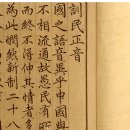 訓民正音
國之語音異乎中國與
不相流通故愚民有所
而終不得伸其情者多
為此憫然新制二十八